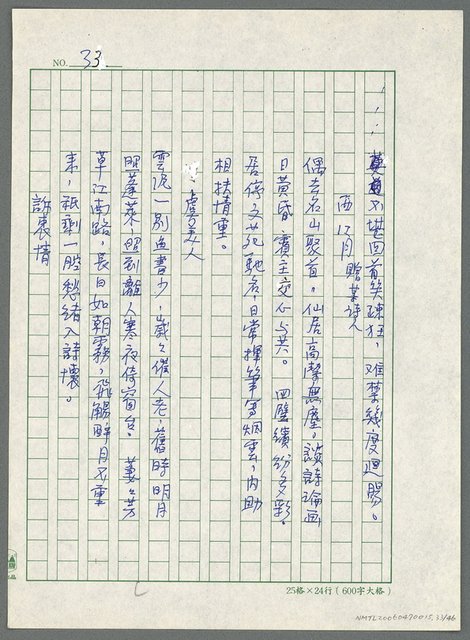 NO. 33
不堪回首笑疎狂，难禁幾度迴腸。
西江月 贈某詩人
偶去名山聚首，仙居高潔無塵。談詩論画
日黃昏，賓主交心与共。 四壁繽紛多彩。
居停文苑馳名，日常揮筆寫烟雲，内助
相扶情重。
虞美人
雲泥一別魚書少，歲々催人老，舊時明月
照蓬萊，照到離人寒夜倚窗台。 萋々芳
草江南路，長日如朝霧，飛觴醉月不重
来，祇剩一腔愁緒入詩懷。
訴衷情
25格×24行（600字大格）
NMTL20050470015, 33/46